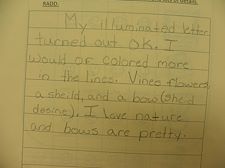 RADD.
My illuminated letter
turned out OK. I
would of colored more
in the lines. Vines flowers,
a sheild, and a bow (she'd
desine). I love nature
and bows are pretty.